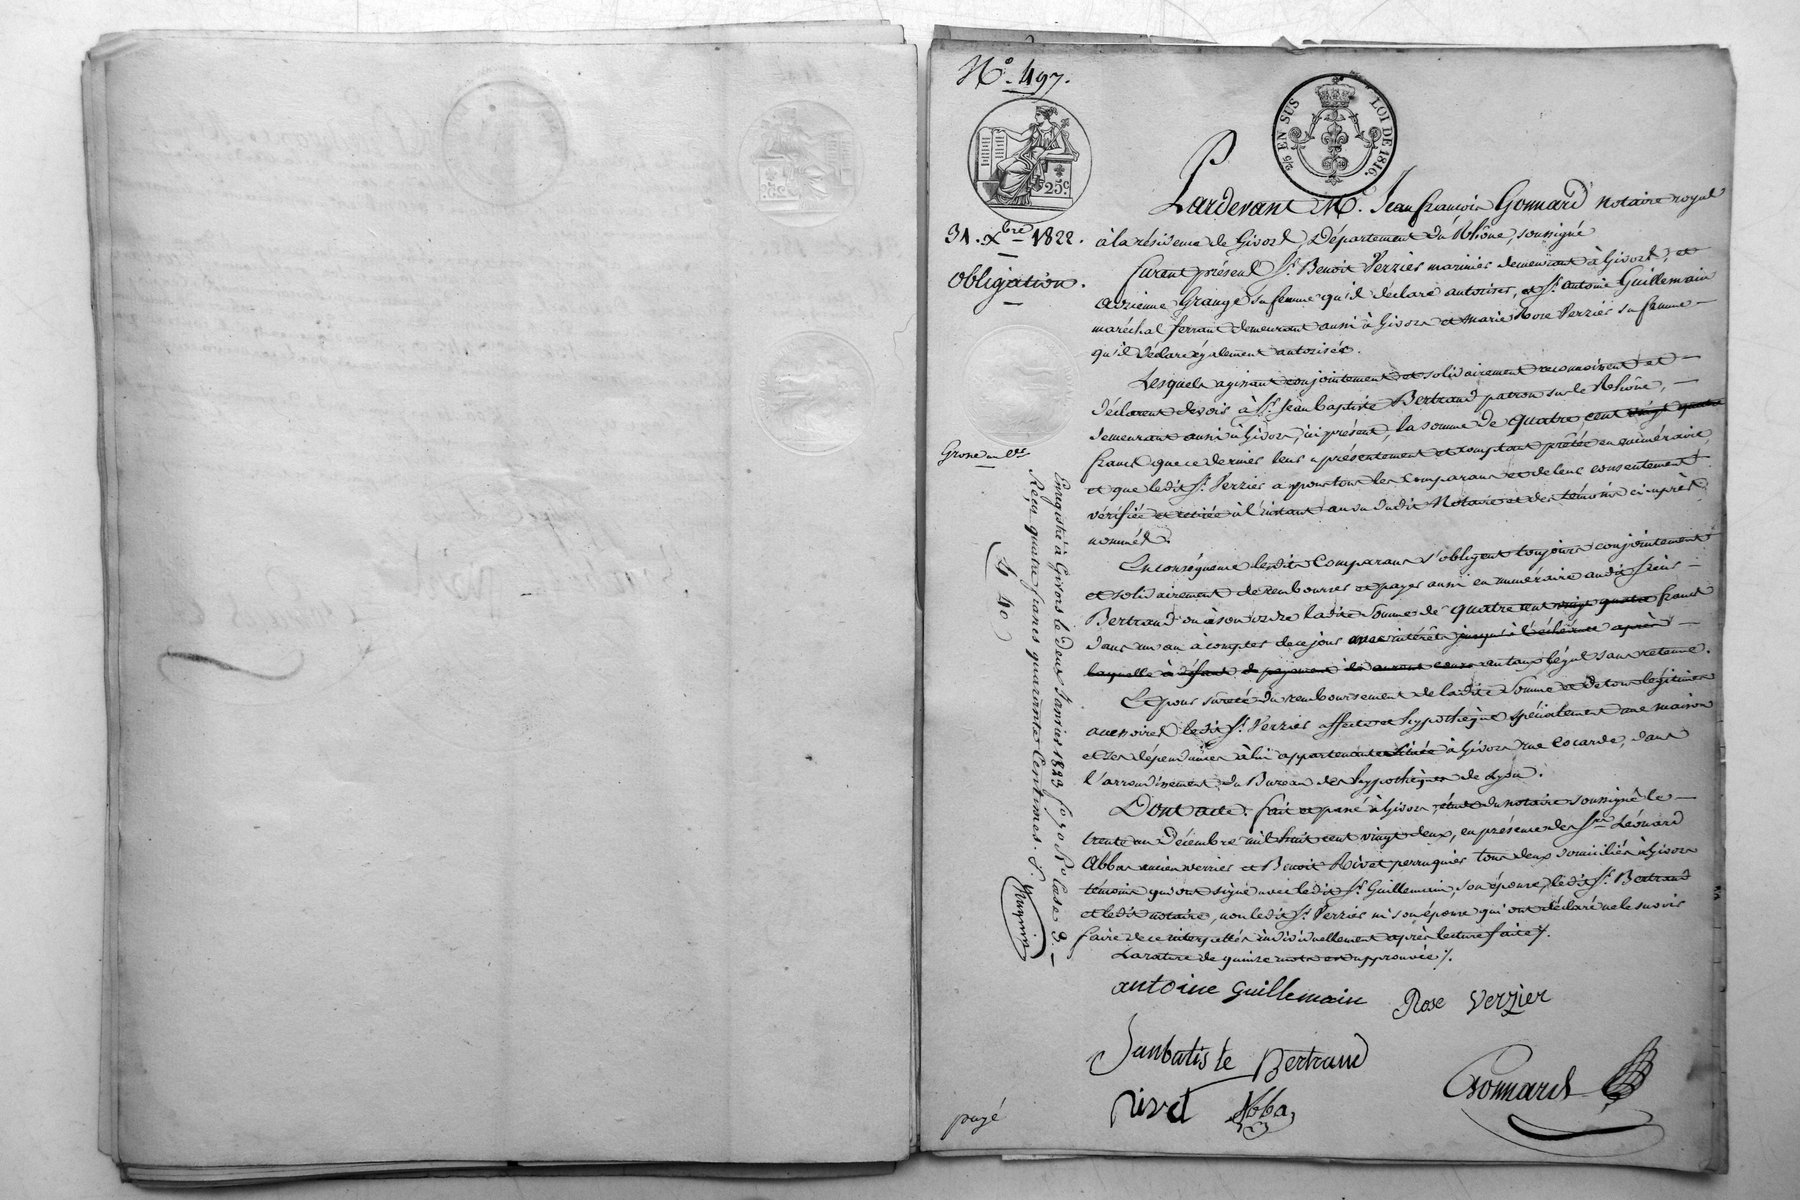 N.º 497.
2/5 EN SUS LOI DE 1816.
25 c.
Pardevant M.e Jean françois Gonnard notaire royal
31. Xbre 1822.
à la résidence de Givors, Département du Rhône, soussigné
obligation.
furent présens Sr. Benoit Verzier marinier demeurant à Givors, et
adrienne Grange sa femme qu'il déclare autoriser, et Sr. antoine Guillemain
maréchal ferrant demeurant aussi à Givors et marie Rose Verzier sa femme
qu'il déclare également autoriser.
Lesquels agissant conjointement et solidairement reconnoissent et
déclarent devoir à Sr. Jean baptiste Bertrand patron sur le Rhône,
demeurant aussi à Givors, ici présent, la somme de quatre cent vingt quatre
francs que ce dernier leur a présentement et comptant prêtée en numéraire
et que ledit Sr. Verzier a pour tous les comparans et de leur consentement
vérifiée et retirée à l'instant au vu dudit Notaire et des témoins ci-après
nommés.
En conséquence lesdits Comparans s'obligent toujours conjointement
et solidairement de rembourser et payer aussi en numéraire audit Sieur
Bertrand ou à son ordre ladite Somme de quatre cent vingt quatre francs
dans un an à compter de ce jour avec intérêts jusqu'à l'échéance après
laquelle à défaut de payement ils auront cours au taux légal sans retenue.
Et pour sûreté du remboursement de ladite Somme et de tous légitimes
accessoires ledit Sr. Verzier affecte et hypothèque spécialement une maison
et ses dépendances à lui appartenante située à Givors rue Cocarde, dans
l'arrondissement du Bureau des hypothèques de Lyon.
Dont acte: fait et passé à Givors, étude du notaire soussigné le
trente un Décembre mil huit cent vingt deux, en présence des Srs. Léonard
Abba ancien verrier et Benoit Rivet perruquier tous deux domiciliés à Givors
témoins qui ont signé avec ledit Sr. Guillemain, son épouse, ledit Sr. Bertrand
et ledit notaire, non ledit Sr. Verzier ni son épouse qui ont déclaré ne le savoir
faire de ce interpellés individuellement après lecture faite ./.
La rature de quinze mots est approuvée ./.
antoine guillemain Rose verzier
Janbatiste Bertrand
rivet Abba
Gonnard
payé
Grosse en Ers
Enregistré à Givors le deux Janvier 1823 fo. 70 Ro. Case 9.
Reçu quatre francs quarante Centimes.
4 40